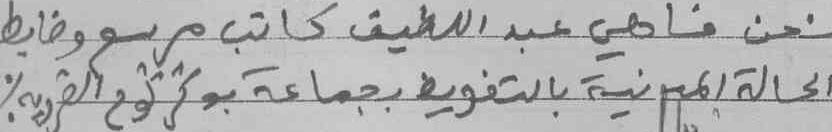 نحن فاطمي عبد اللطيف كاتب مرسم وضابط
الحالة المدنية بالتفويض بجماعة بوكركوح القروية٪